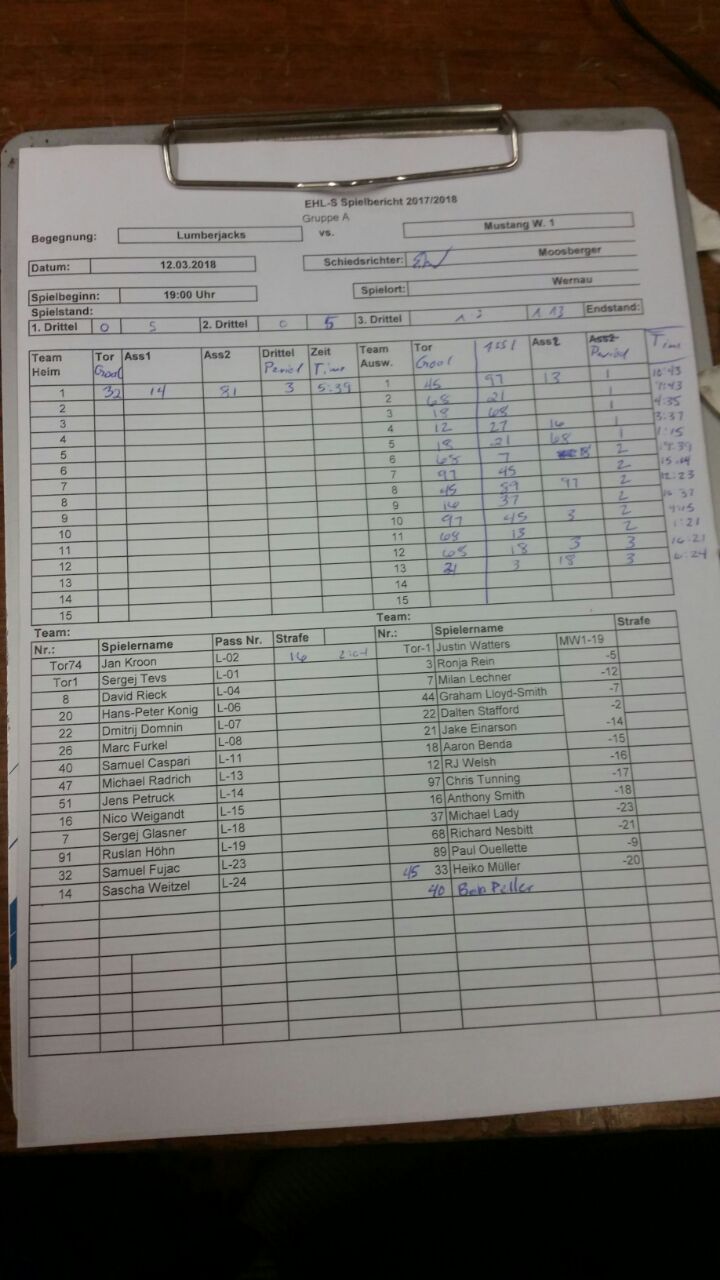 EHL-S Spielbericht 2017/2018
Gruppe A
Begegnung: Lumberjacks vs. Mustang W. 1
Datum: 12.03.2018 Schiedsrichter: Moosberger
Spielbeginn: 19:00 Uhr Spielort: Wernau
Spielstand:
1. Drittel 0 5 2. Drittel 0 5 3. Drittel 1 13 Endstand:
Team Heim Tor Goal Ass1 Ass2 Drittel Period Zeit Time Team Ausw. Tor Goal Ass1 Ass2 Ass2 Period Time
1 32 14 81 3 5:39 1 45 97 13 1 10:43
2 2 68 21 1 7:43
3 3 18 68 1 4:35
4 4 12 27 16 1 3:37
5 5 18 21 68 1 1:15
6 6 68 7 8 2
7 7 97 45 2
8 8 45 89 97 2 12:23
9 9 16 37 2
10 10 97 45 3 2
11 11 68 13 2 1:21
12 12 68 18 3 3 16:21
13 13 21 3 18 3 6:24
14 14
15 15
Team: Team:
Nr.: Spielername Pass Nr. Strafe Nr.: Spielername Strafe
Tor74 Jan Kroon L-02 16 Tor-1 Justin Watters MW1-19
Tor1 Sergej Tevs L-01 3 Ronja Rein -5
8 David Rieck L-04 7 Milan Lechner -12
20 Hans-Peter Konig L-06 44 Graham Lloyd-Smith -7
22 Dmitrij Domnin L-07 22 Dalten Stafford -2
26 Marc Furkel L-08 21 Jake Einarson -14
40 Samuel Caspari L-11 18 Aaron Benda -15
47 Michael Radrich L-13 12 RJ Welsh -16
51 Jens Petruck L-14 97 Chris Tunning -17
16 Nico Weigandt L-15 16 Anthony Smith -18
7 Sergej Glasner L-18 37 Michael Lady -23
91 Ruslan Höhn L-19 68 Richard Nesbitt -21
32 Samuel Fujac L-23 89 Paul Ouellette -9
14 Sascha Weitzel L-24 45 33 Heiko Müller -20
40 Bob Peller